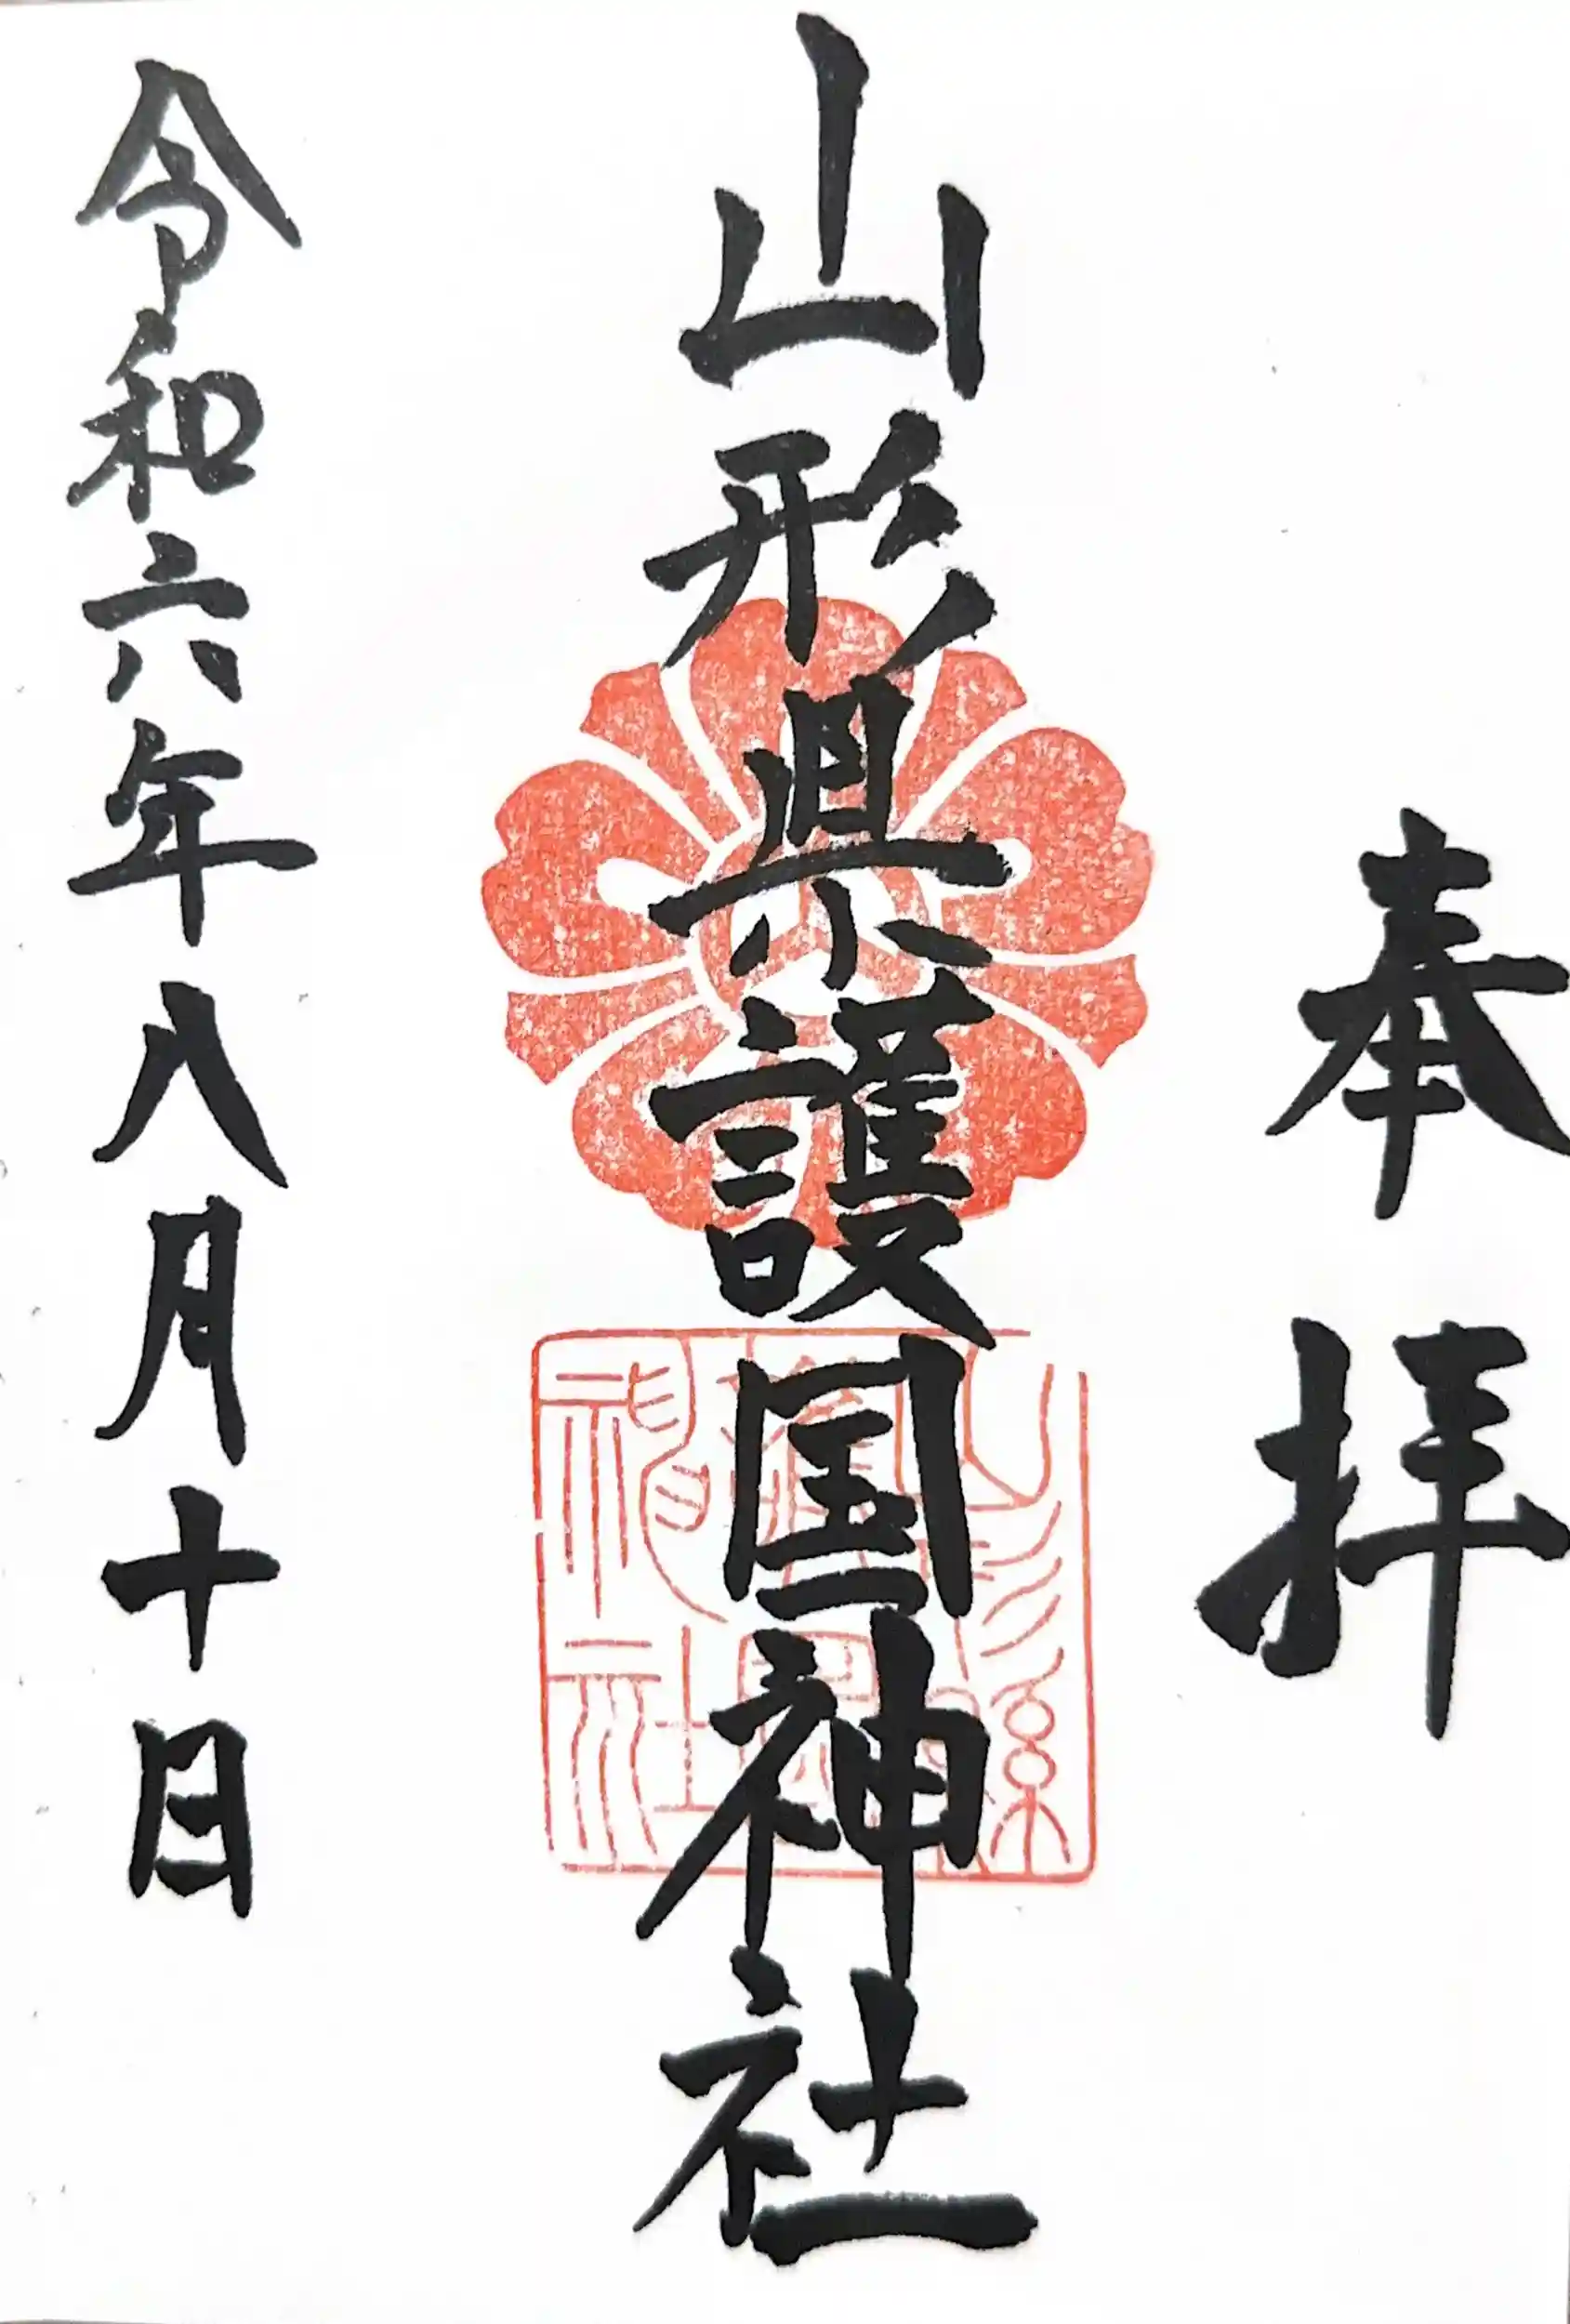 奉拝
山形県護国神社
令和六年八月十日